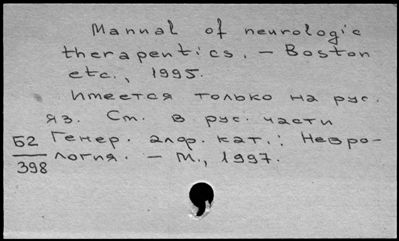 Manual of neurologic
therapeutics. – Boston
etc., 1995.
Имеется только на рус.
яз. См. в рус. части
Генер. алф. кат.: Невро-
логия. – М., 1997.
Б2
398